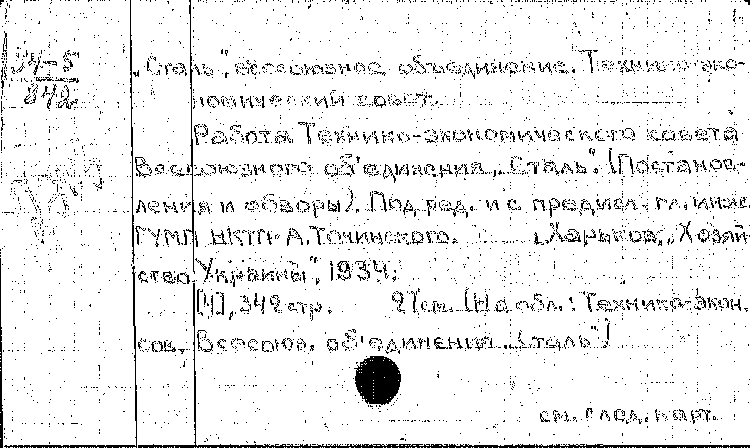 34-5
842
„Сталь", всесоюзное объединение. Технико-эко-
номический совет.
Работа Технико-экономического совета
Всесоюзного об'единения „Сталь". (Постанов-
ления и обзоры). Под ред. и с предисл. гл. инж.
ГУМП НКТП А. Точинского. Харьков, „Хозяй-
ство Украины", 1934.
[4], 342 стр. 27 см. (На обл.: Технико-экон.
сов. Всесоюз. об'единения „Сталь")
см. след. карт.